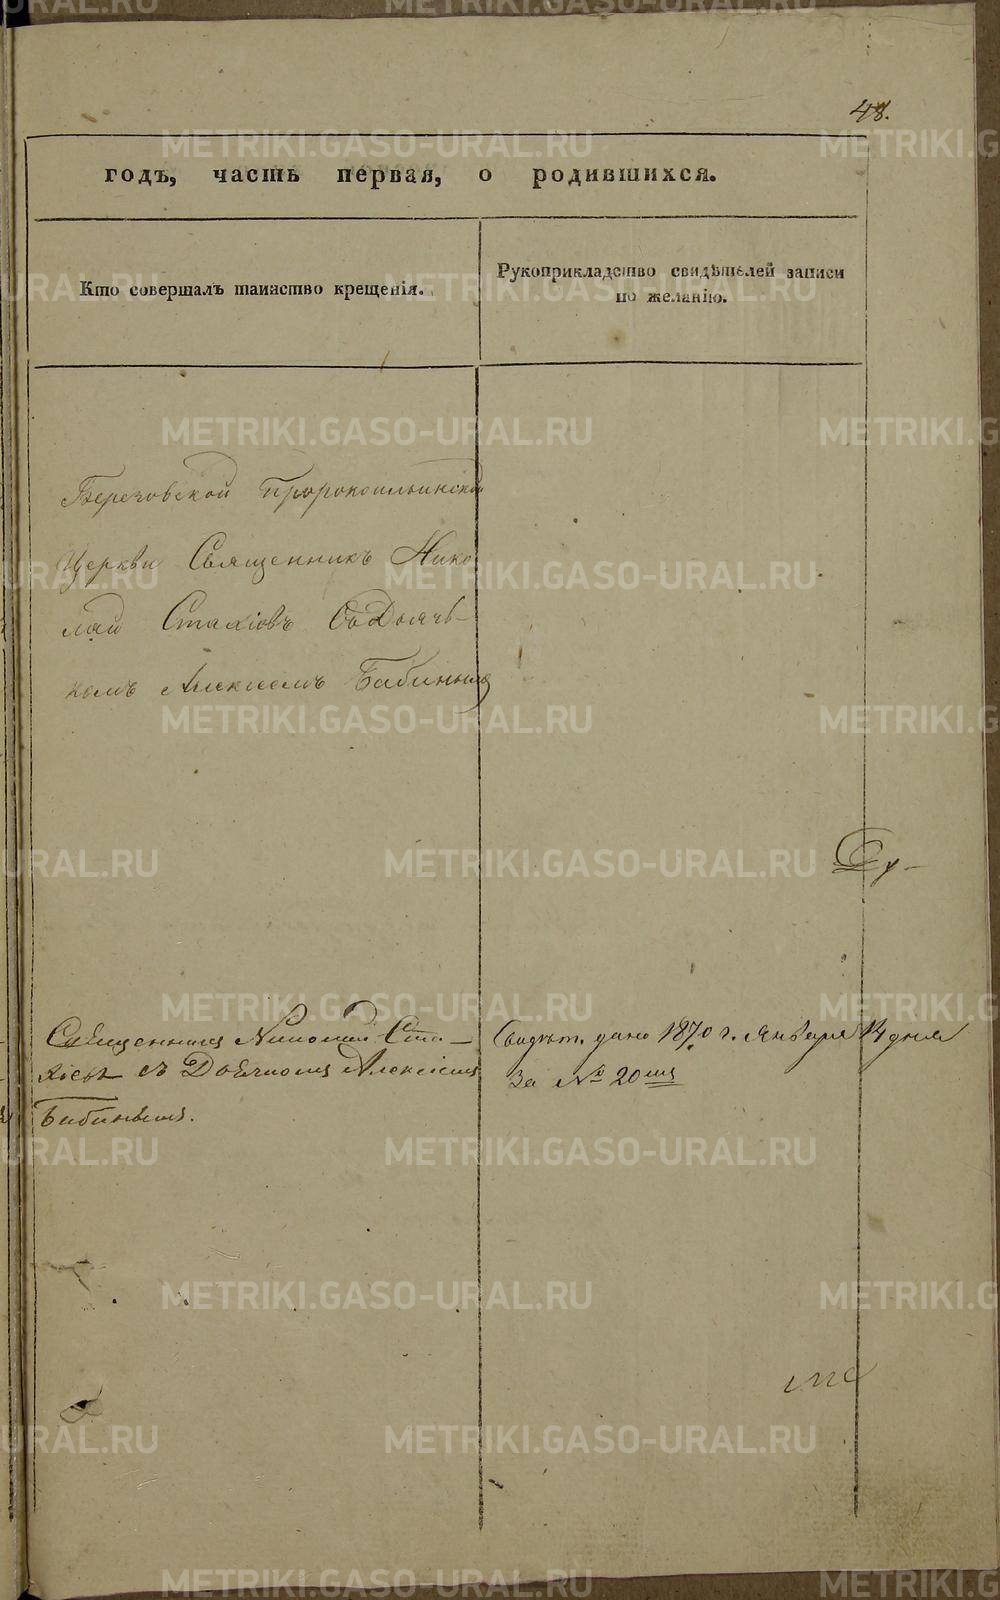 48.
годъ, часть первая, о родившихся.
Кто совершалъ таинство крещенія.
Рукоприкладство свидѣтелей записи
по желанію.
Березовской Пророкоильинской
Церкви Священникъ Нико
лай Стахіовъ Съ Дьячь-
комъ Алексіемъ Бабинымъ
Священникъ Николай Ста-
хіевъ съ Дьячкомъ Алексіемъ
Бабинымъ.
Свидѣт. дано 1870 г. Января 14 дня
За № 20мъ
METRIKI.GASO-URAL.RU